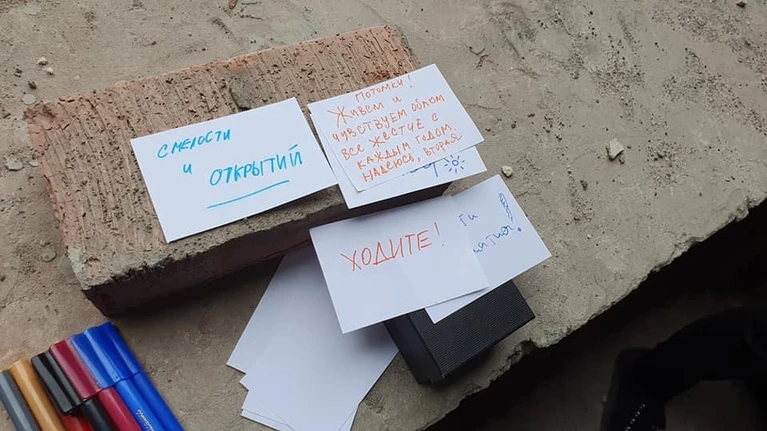 СМЕЛОСТИ
и
ОТКРЫТИЙ
ПОТОМКИ!
ЖИВЕМ И
ЧУВСТВУЕМ ОБЛОМ
ВСЕ ЖЕСТЧЕ С
КАЖДЫМ ГОДОМ.
НАДЕЮСЬ, ВТОРАЯ
ХОДИТЕ!